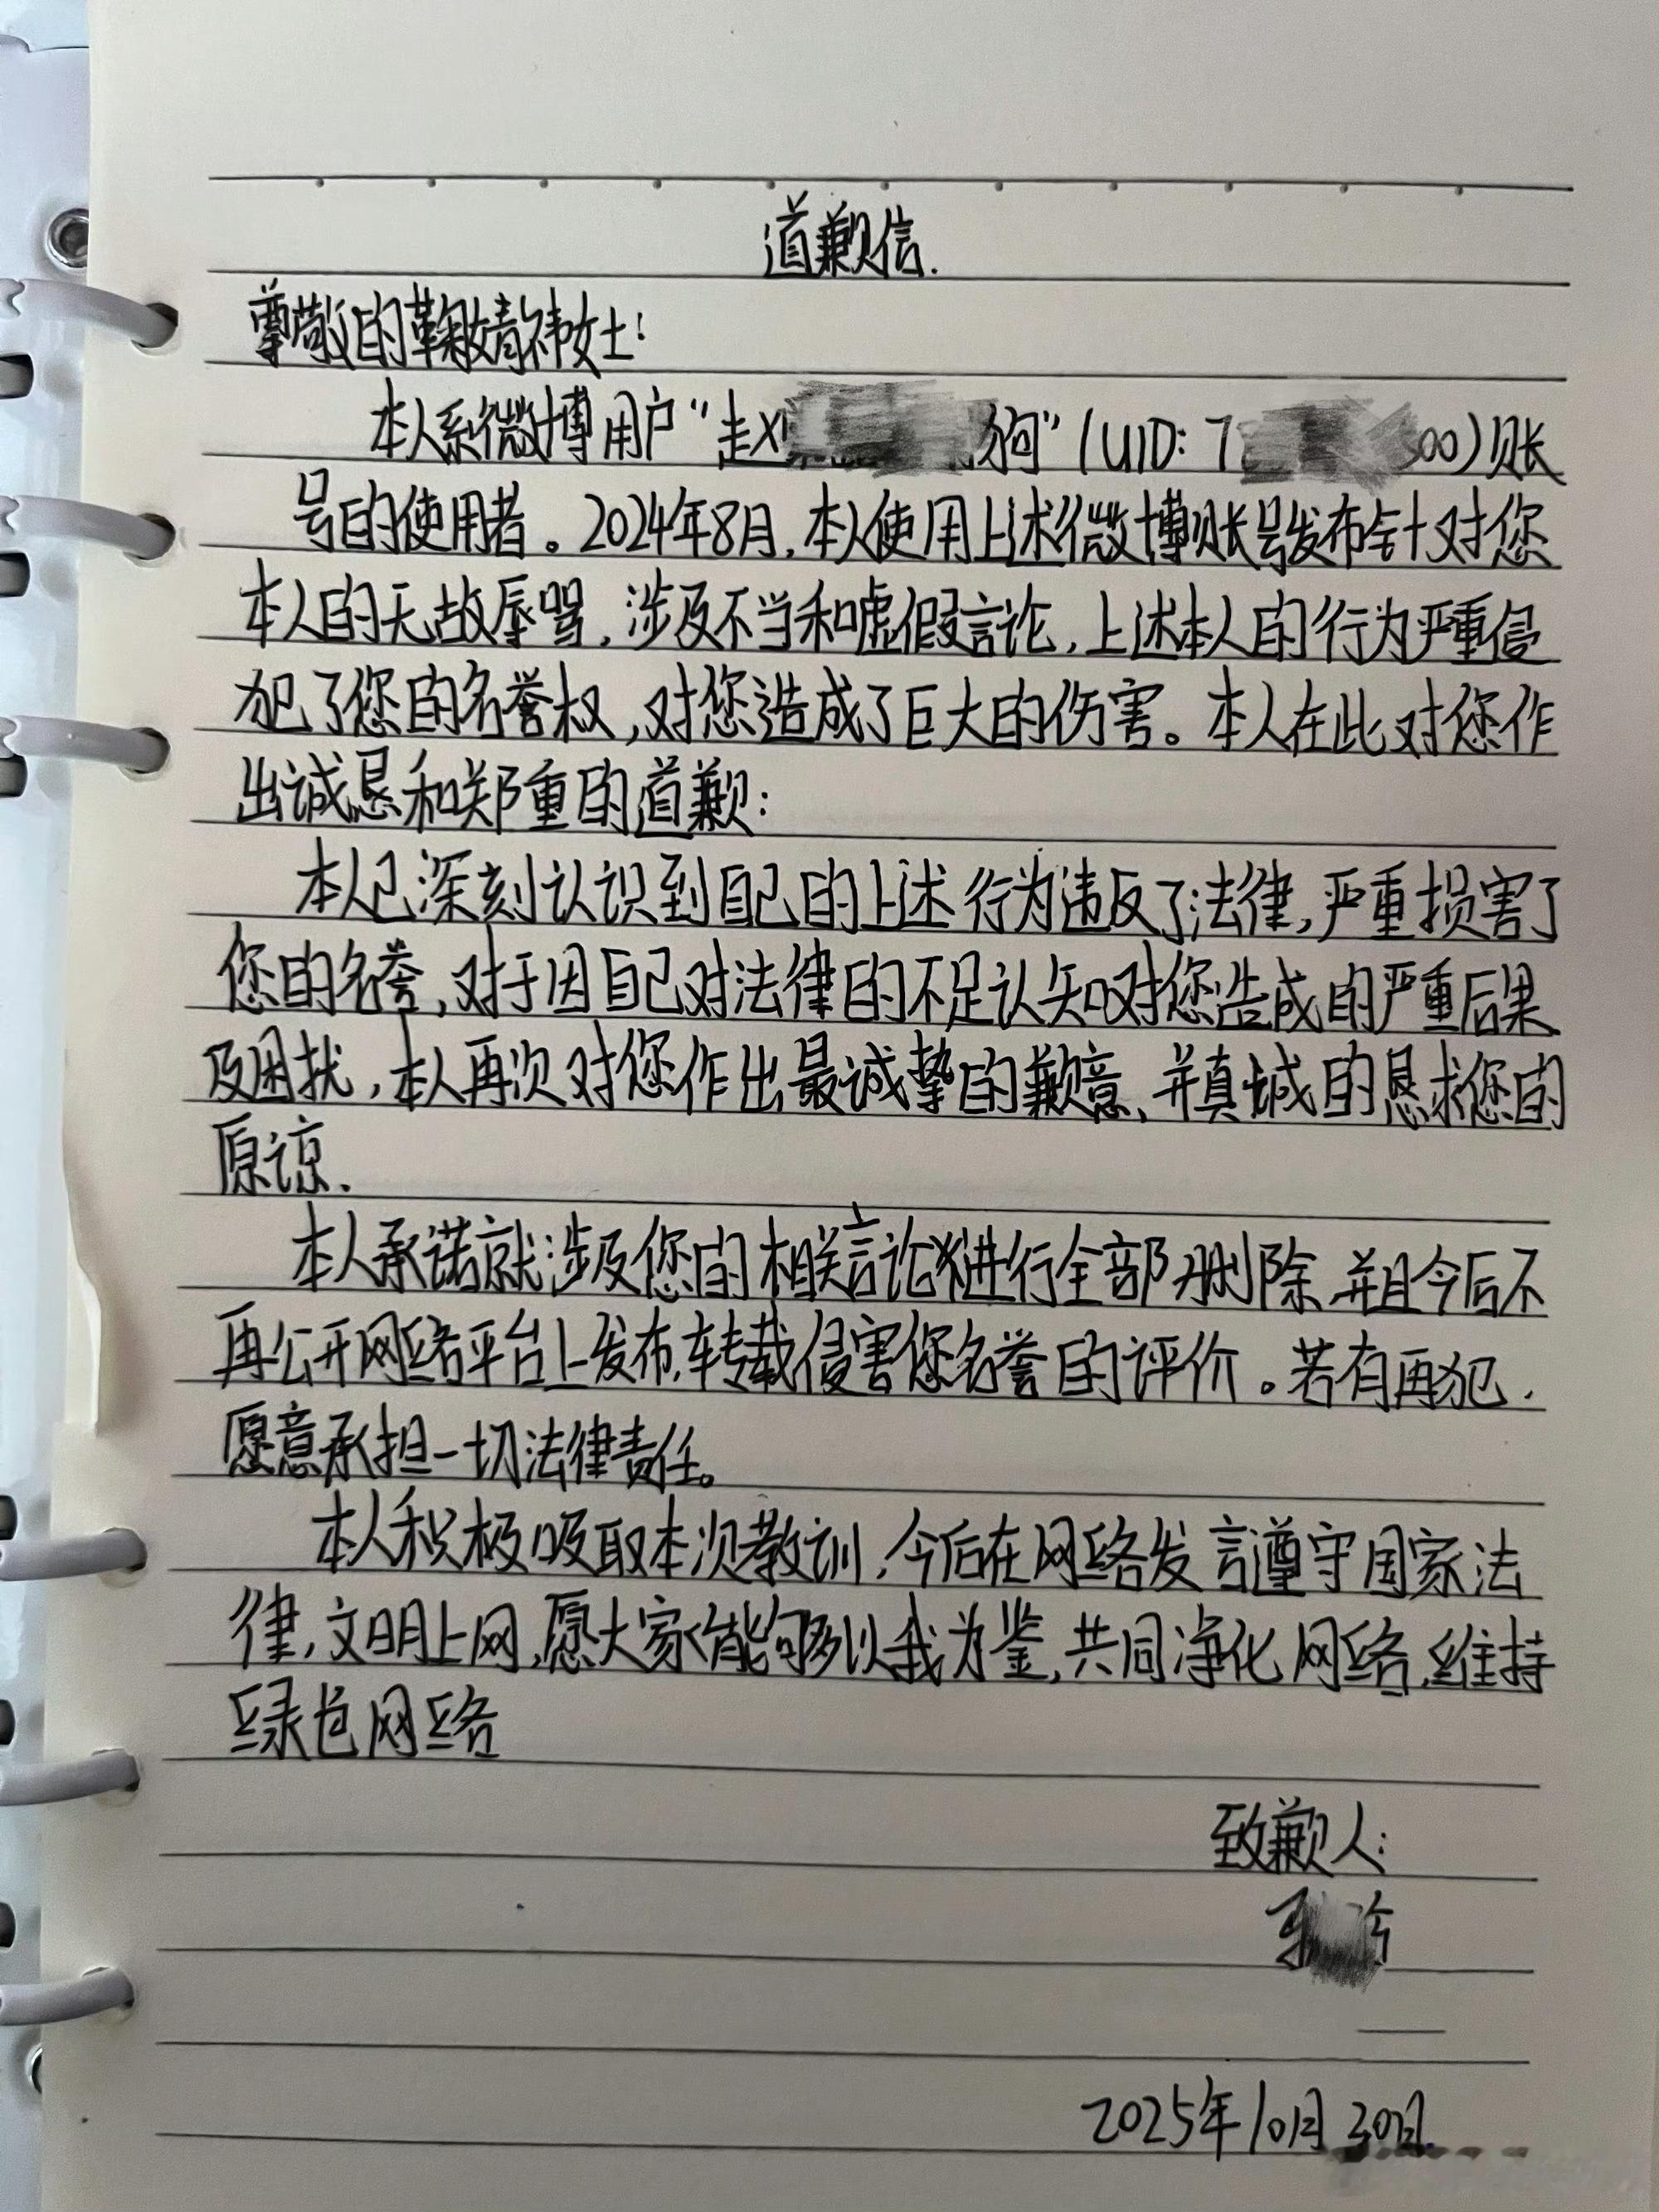 道歉信.
尊敬的鞠婧祎女士:
本人系微博用户"赵 狗"(UID: 7 00)账
号的使用者。2024年8月,本人使用上述微博账号发布针对您
本人的无故辱骂,涉及不当和虚假言论,上述本人的行为严重侵
犯了您的名誉权,对您造成了巨大的伤害。本人在此对您作
出诚恳和郑重的道歉:
本人已深刻认识到自己的上述行为违反了法律,严重损害了
您的名誉,对于因自己对法律的不足认知对您造成的严重后果
及困扰,本人再次对您作出最诚挚的歉意,并真诚的恳求您的
原谅.
本人承诺就涉及您的相关言论进行全部删除,并且今后不
再公开网络平台上发布,转载侵害您名誉的评价。若有再犯,
愿意承担一切法律责任。
本人积极吸取本次教训,今后在网络发言遵守国家法
律,文明上网,愿大家能够以我为鉴,共同净化网络,维持
绿色网络
致歉人:
2025年10月30日